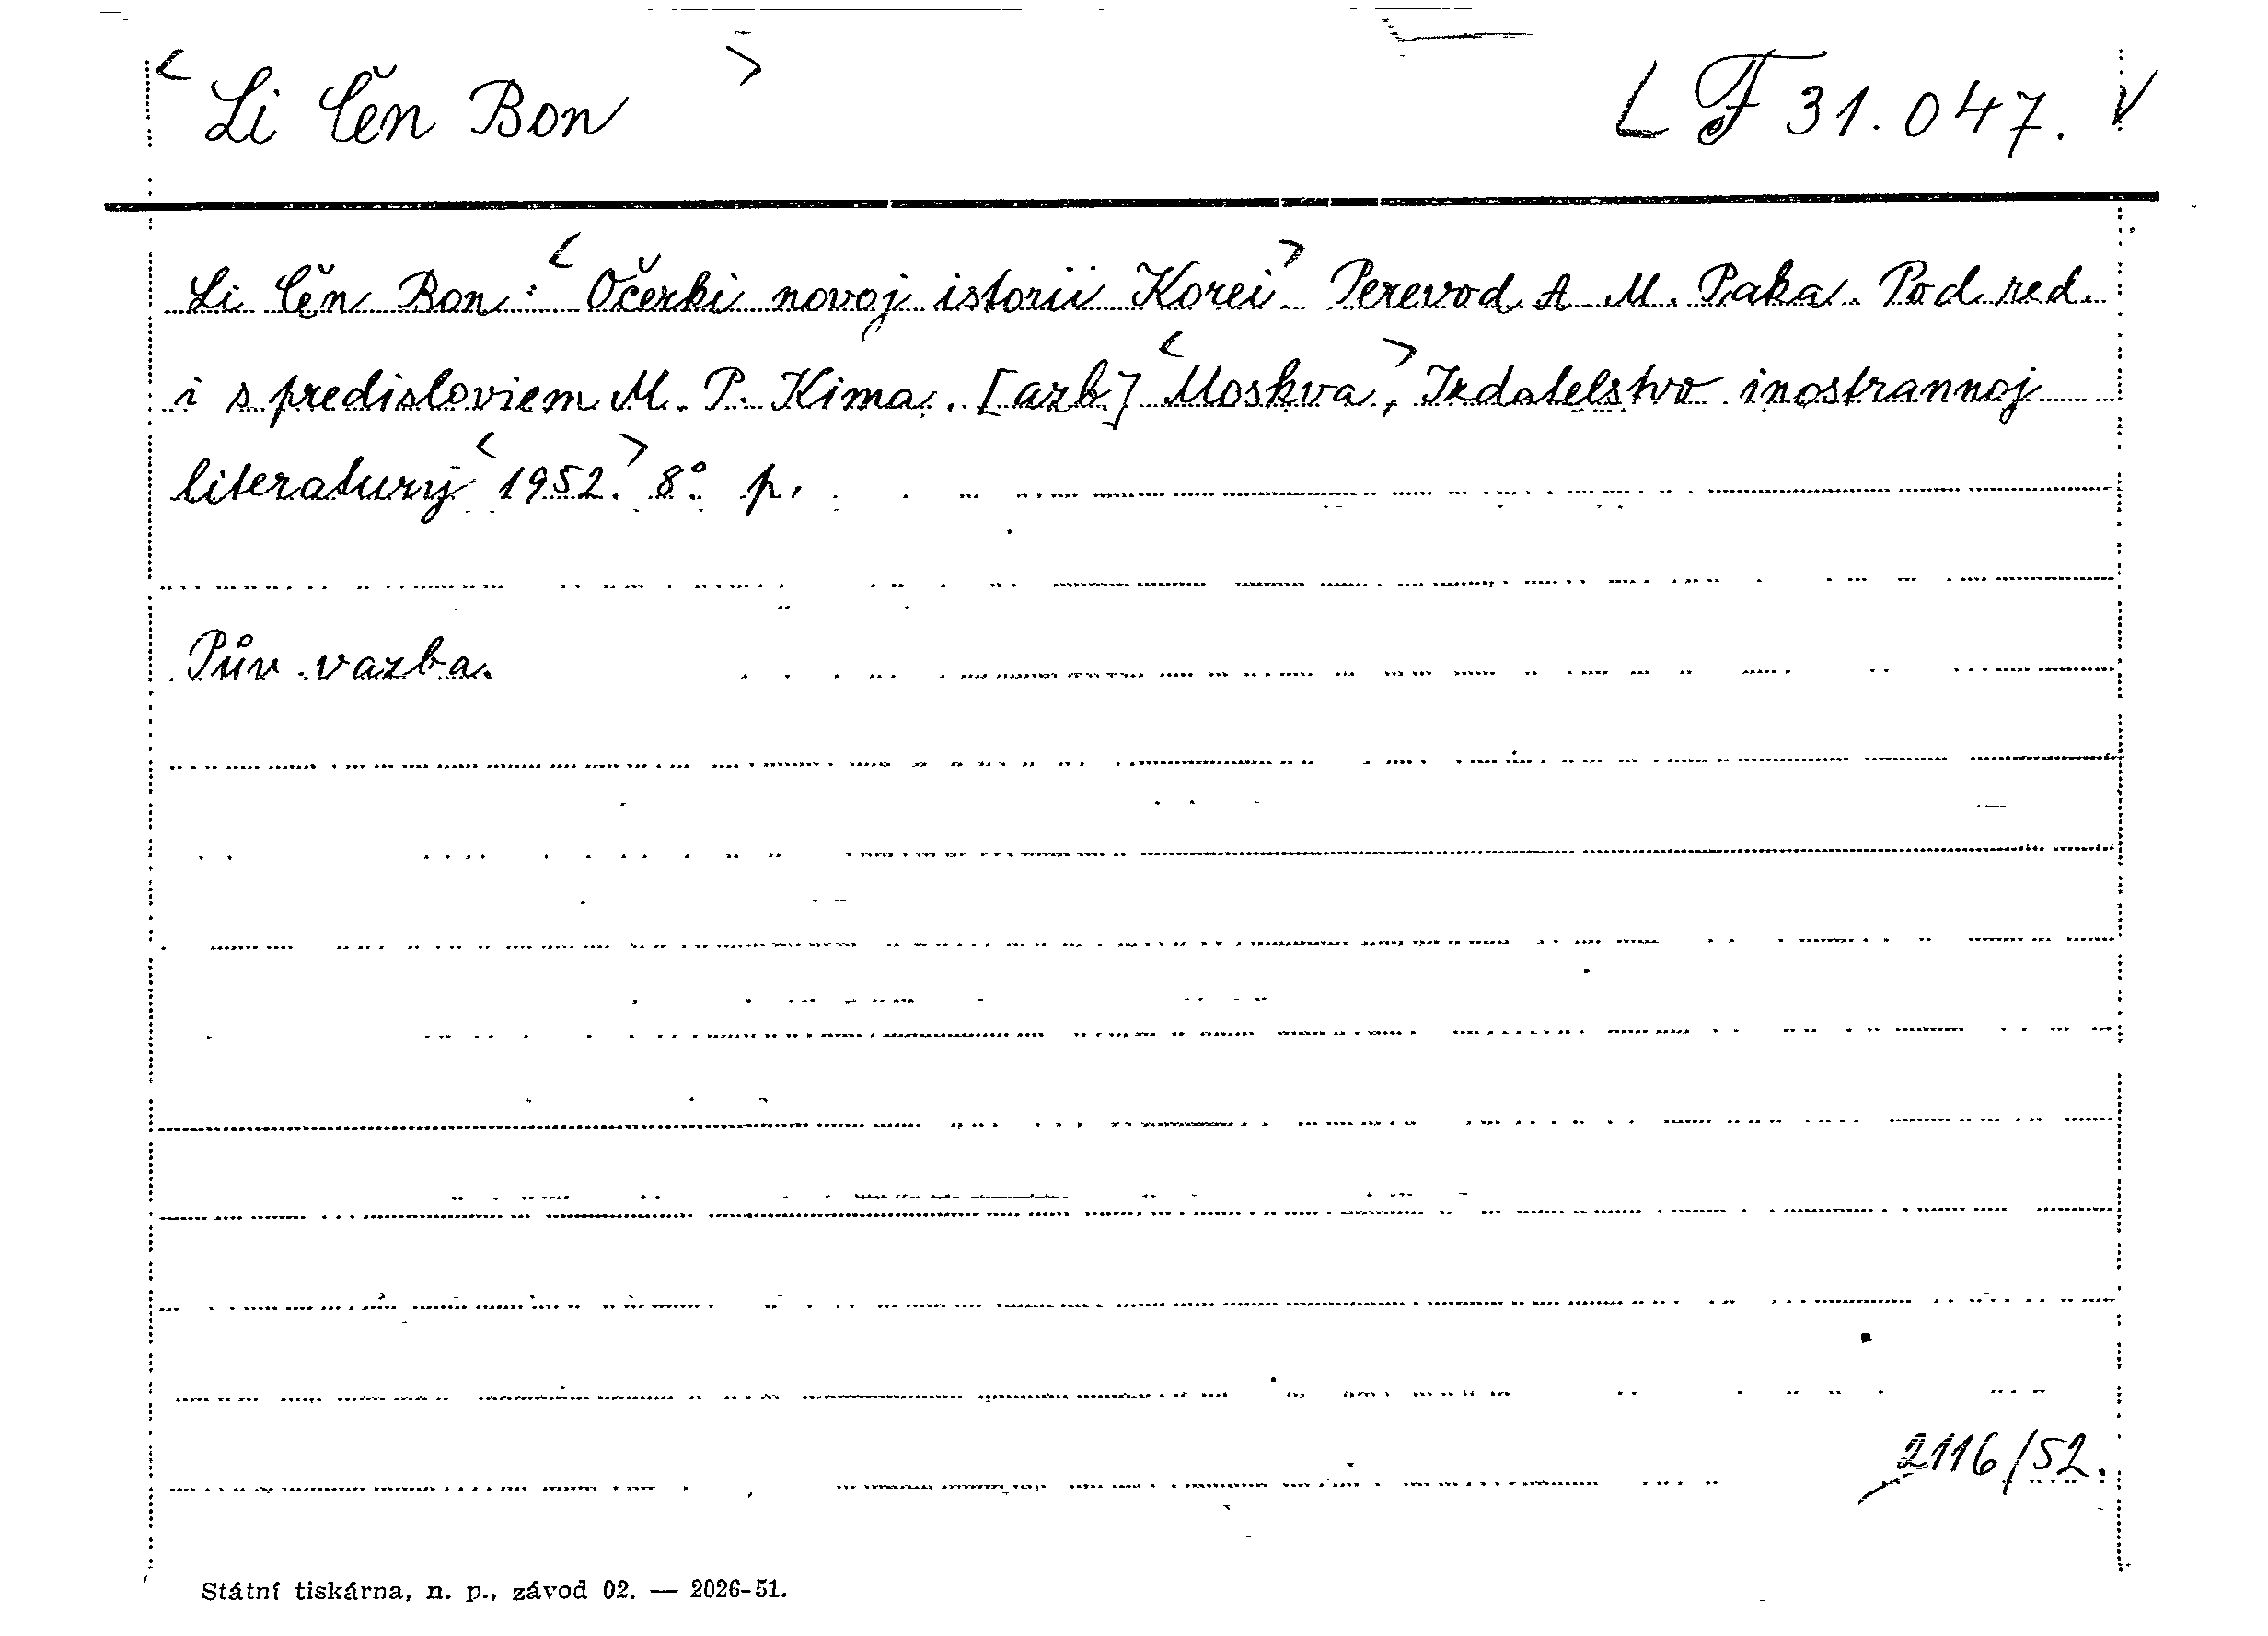 < Li Čen Bon > L F 31.047. V
Li Čen Bon: < Očerki novoj istorii Korei > Perevod A. M. Paka. Pod red.
i s predisloviem M. P. Kima. [azb] < Moskva, > Izdatelstvo inostrannoj
literatury < 1952. > 8° p.
Pův. vazba.
2116/52.
Státní tiskárna, n. p., závod 02. — 2026-51.